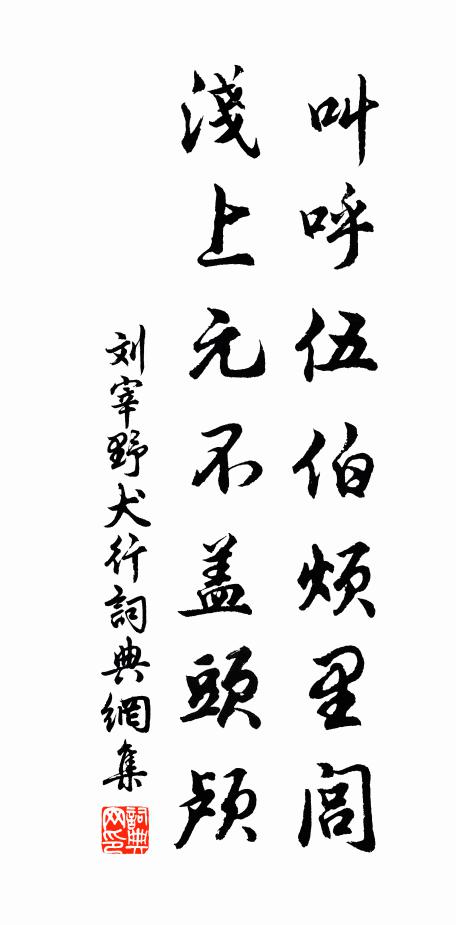 叫呼伍伯烦里闾
淺上元不盖頭颅
刘宰野犬行詞典網集
詞典网印